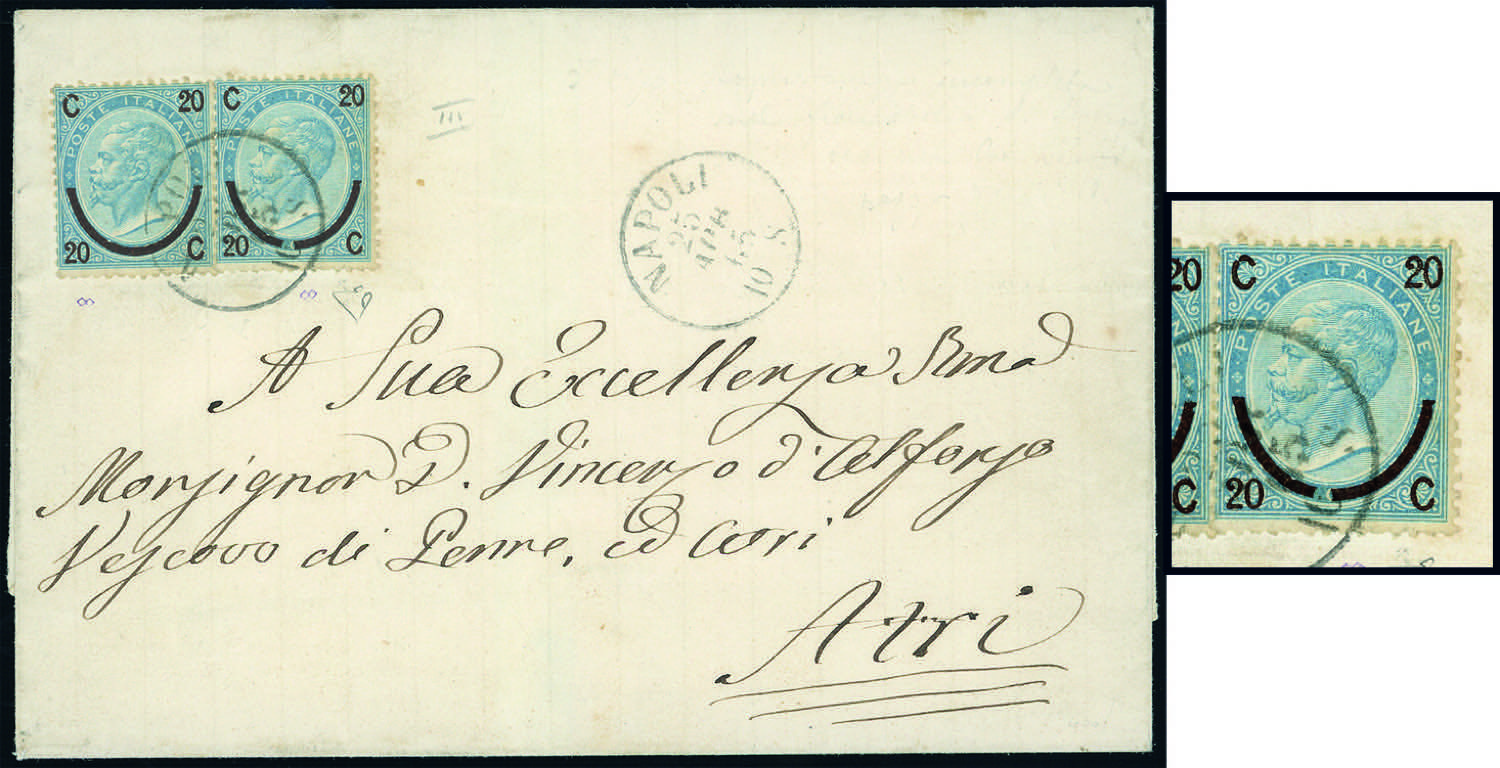 C 20
POSTE ITALIANE
20 C
C 20
POSTE ITALIANE
20 C
III
NAPOLI
25
APR
65
10 S.
A Sua Eccellenza Rma
Monsignor D. Vincenzo d'Alfonso
Vescovo di Penne, ed Atri
Atri
20
C
C 20
POSTE ITALIANE
20 C